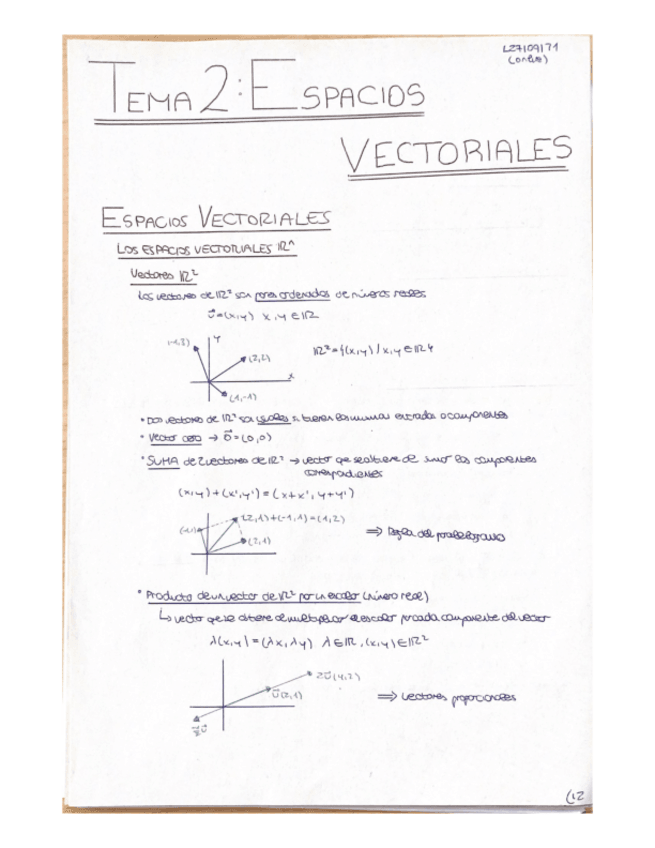 L27109171
(online)
TEMA 2: ESPACIOS
VECTORIALES
ESPACIOS VECTORIALES
LOS ESPACIOS VECTORIALES ℝ^
Vectores ℝ²
Los vectores de ℝ² son pares ordenados de números reales
u⃗=(x,y) x,y∈ℝ
y
(2,2)
ℝ²={(x,y)/x,y∈ℝ}
x
(1,-1)
• Dos vectores de ℝ² son iguales si tienen las mismas entradas o componentes
• Vector cero → 0⃗=(0,0)
• SUMA de 2 vectores de ℝ² → vector que se obtiene de sumar las componentes
correspondientes
(x,y)+(x',y')=(x+x', y+y')
(2,1)+(-1,1)=(1,2)
(-1,1)
(2,1)
⇒ Regla del paralelogramo
• Producto de un vector de ℝ² por un escalar (número real)
↳ vector que se obtiene de multiplicar el escalar por cada componente del vector
λ(x,y)=(λx,λy) λ∈ℝ, (x,y)∈ℝ²
2u⃗(4,2)
u⃗(2,1)
⇒ vectores proporcionales
(12